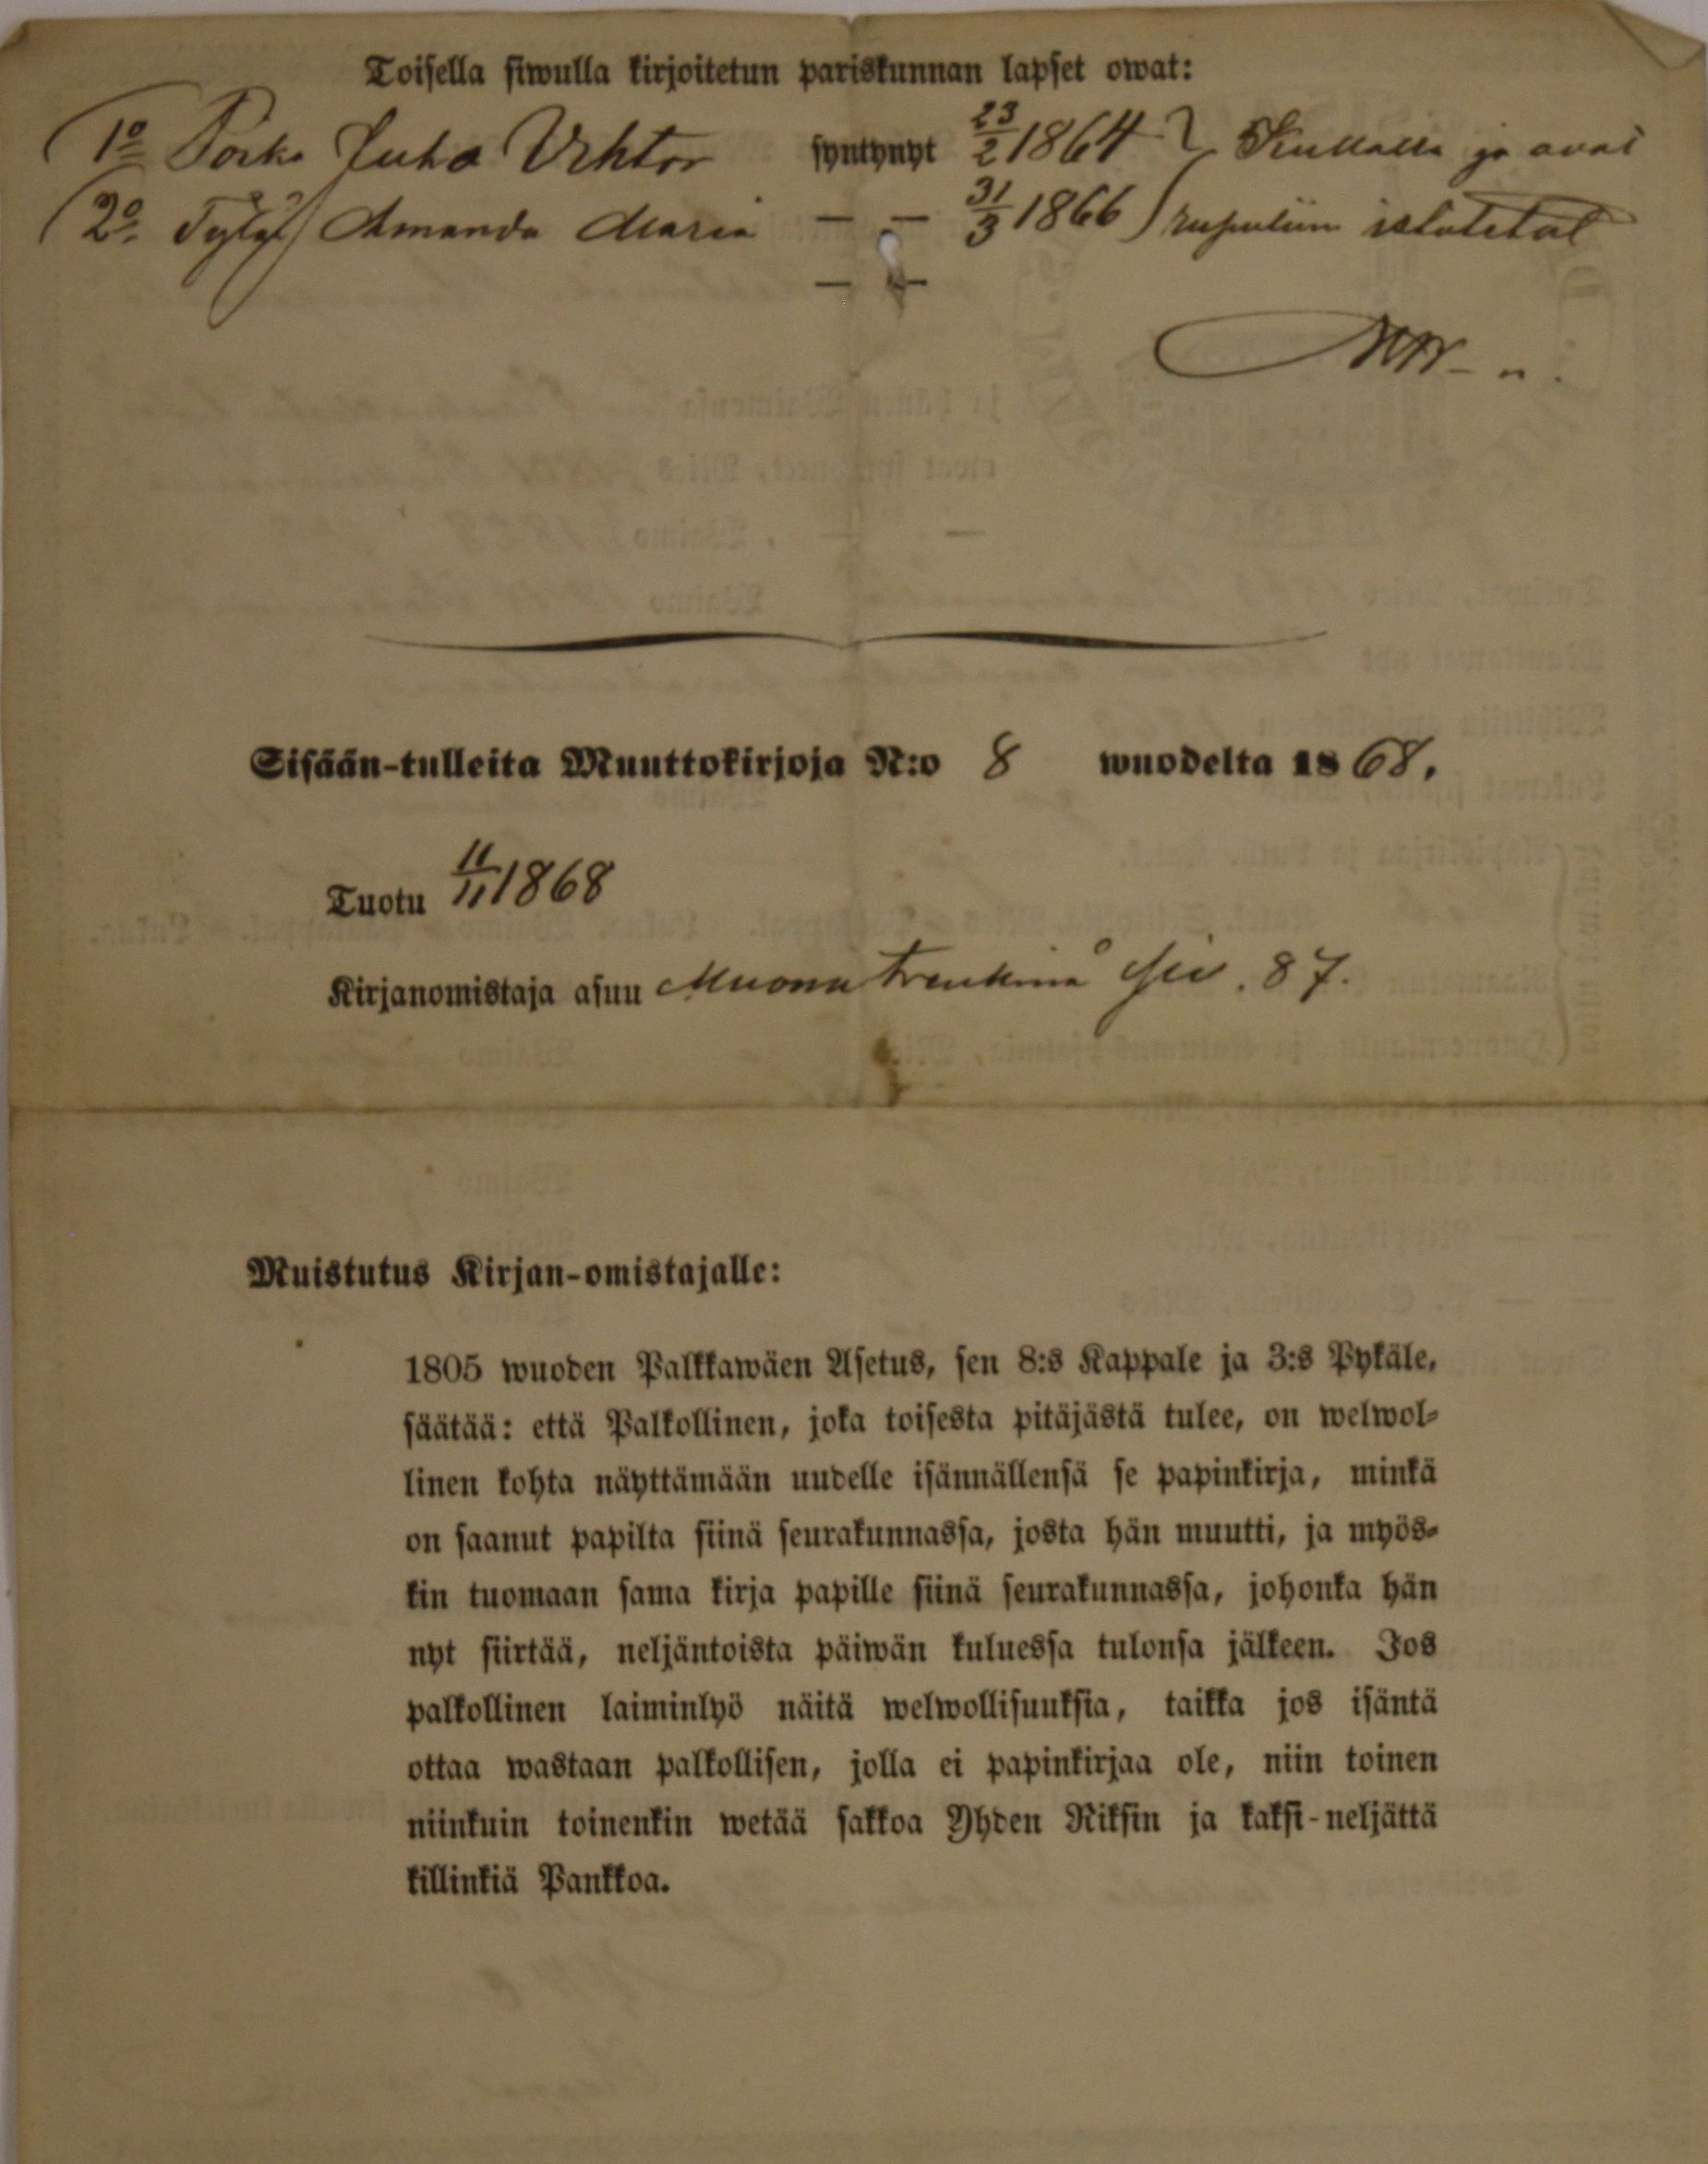 Toisella siwulla kirjoitetun pariskunnan lapset owat:
1o Poika Juha Vihtor syntynyt 23/2 1864 ja ovat
2o Tytär Amanda Maria — — 31/3 1866 rupuliin istutetut
— —
Sisään-tulleita Muuttokirjoja N:o 8 wuodelta 1868.
Tuotu 11/11 1868
Kirjanomistaja asuu Muona Siv. 87.
Muistutus Kirjan-omistajalle:
1805 wuoden Palkkawäen Asetus, sen 8:s Kappale ja 3:s Pykäle,
säätää: että Palkollinen, joka toisesta pitäjästä tulee, on welwol-
linen kohta näyttämään uudelle isännällensä se papinkirja, minkä
on saanut papilta siinä seurakunnassa, josta hän muutti, ja myös-
kin tuomaan sama kirja papille siinä seurakunnassa, johonka hän
nyt siirtää, neljäntoista päiwän kuluessa tulonsa jälkeen. Jos
palkollinen laiminlyö näitä welwollisuuksia, taikka jos isäntä
ottaa wastaan palkollisen, jolla ei papinkirjaa ole, niin toinen
niinkuin toinenkin wetää sakkoa Yhden Riksin ja kaksi-neljättä
killinkiä Pankkoa.